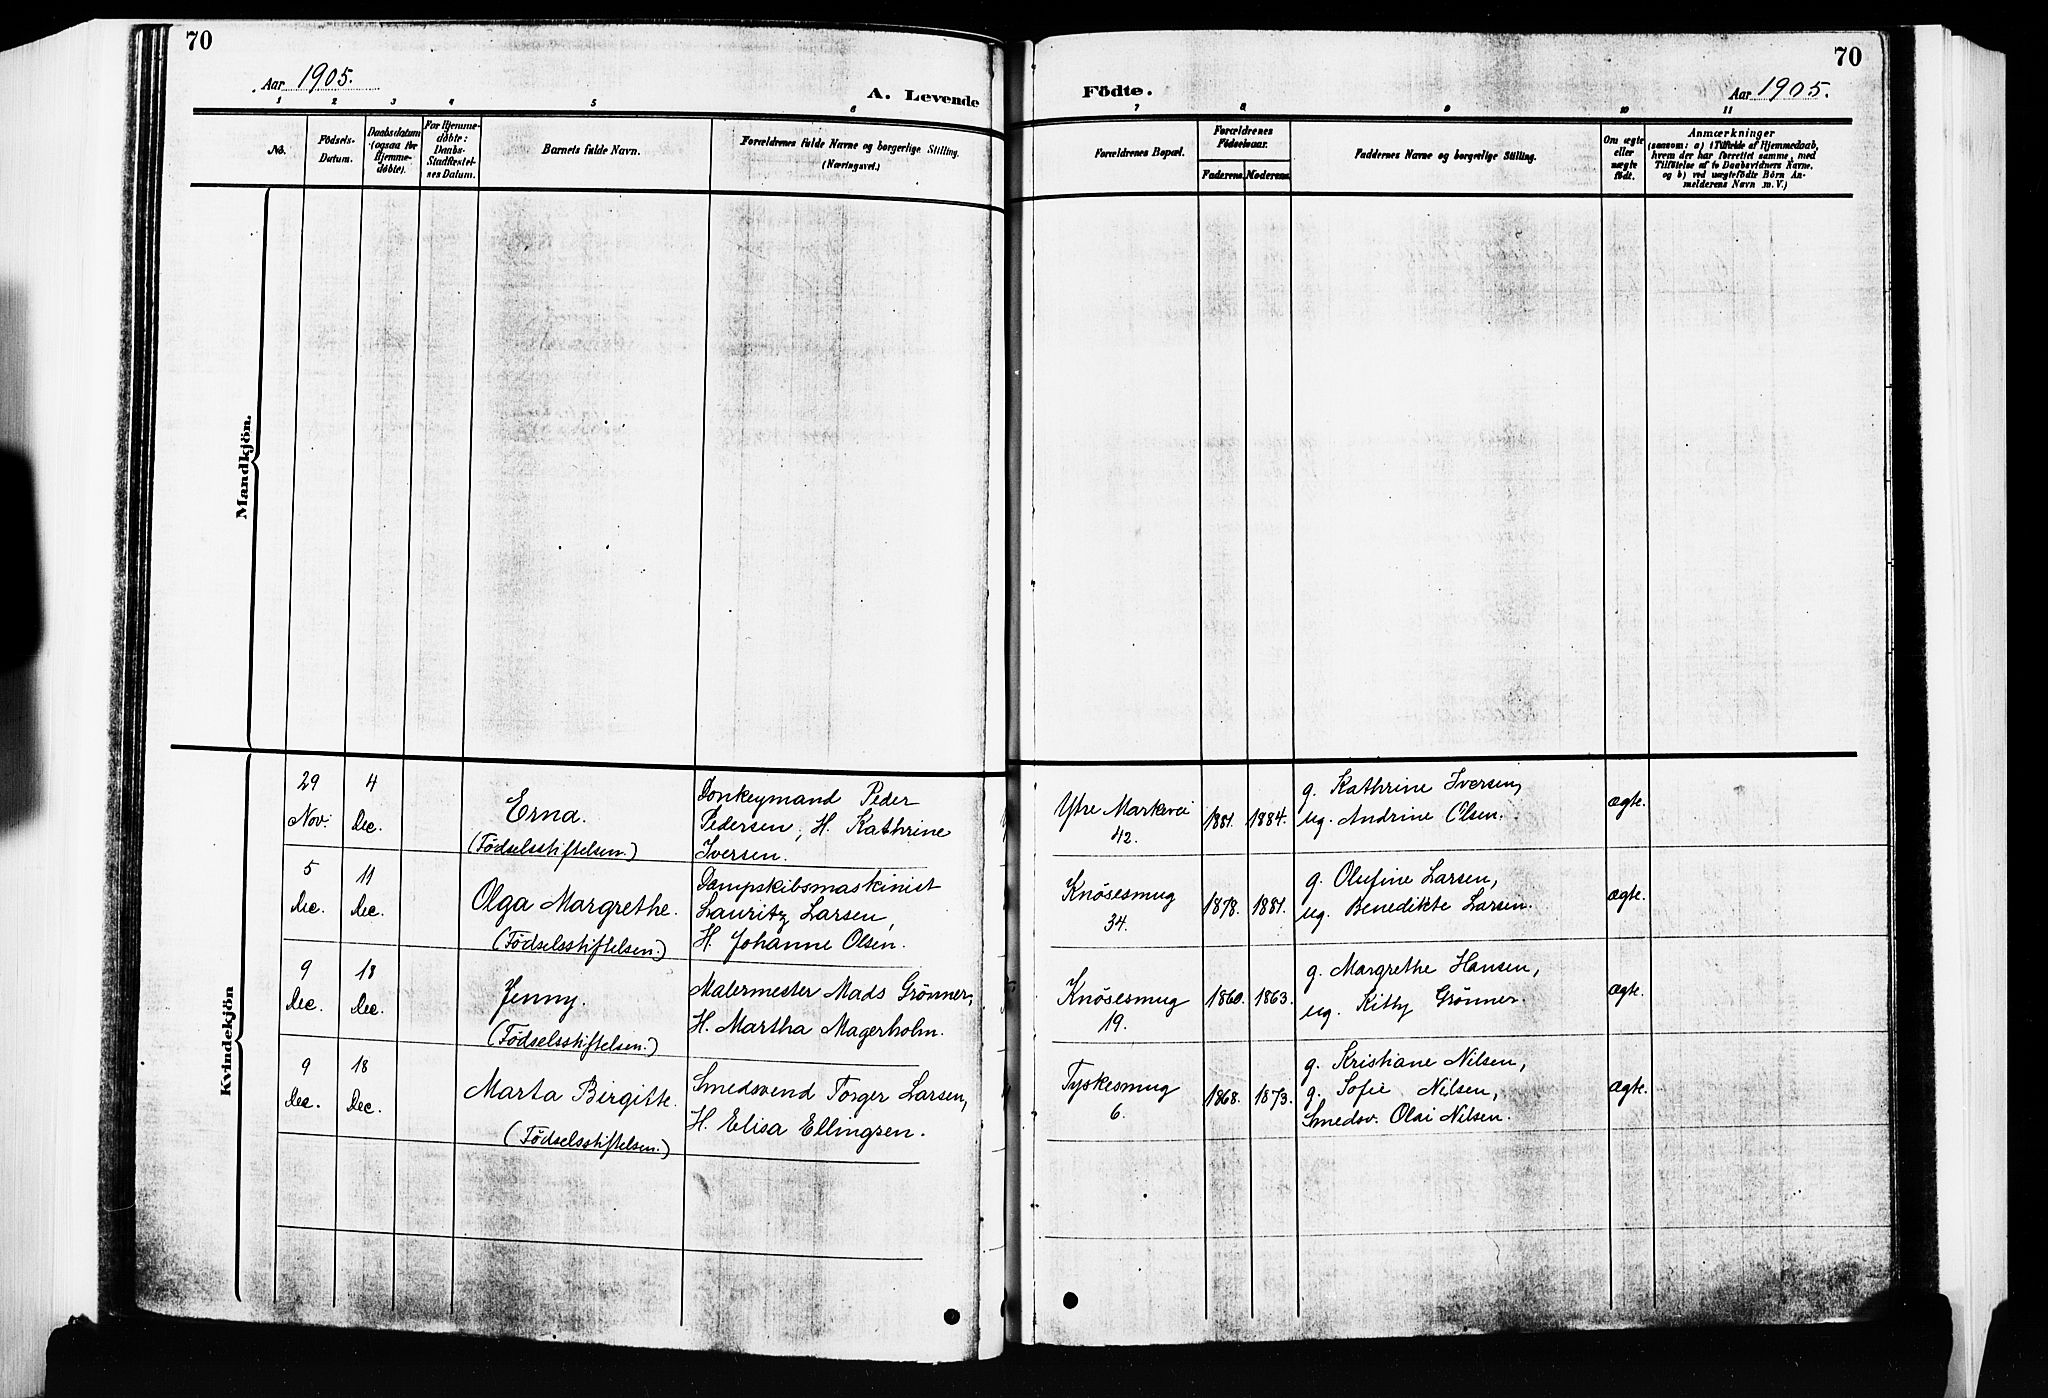 70
Aar 1905.
A. Levende
1 2 3 4 5 6
No.
Födsels-
Datum.
Daabsdatum
(ogsaa for
Hjemme-
döbte).
For Hjemme-
döbte:
Daabs-
Stadfæstel-
ses Datum.
Barnets fulde Navn.
Forældrenes fulde Navne og borgerlige Stilling.
(Næringsvei.)
Mandkjön.
Kvindekjön
29
Nov.
4
Dec.
Erna.
(Födselsstiftelsen.)
Donkeymand Peder
Pedersen, H. Kathrine
Iversen.
5
Dec.
11
Dec.
Olga Margrethe.
(Födselsstiftelsen.)
Dampskibsmaskinist
Lauritz Larsen,
H. Johanne Olsen.
9
Dec.
18
Dec.
Jenny.
(Födselsstiftelsen.)
Malermester Mads Grönner,
H. Martha Magerholm.
9
Dec.
18
Dec.
Marta Birgitte.
(Födselsstiftelsen.)
Smedsvend Torger Larsen,
H. Elisa Ellingsen.
70
Födte.
Aar 1905.
7 8 9 10 11
Forældrenes Bopæl.
Forældrenes
Födselsaar.
Faderens. Moderens.
Faddernes Navne og borgerlige Stilling.
Om ægte
eller
uægte
födt.
Anmærkninger
(saasom: a) i Tilfælde af Hjemmedaab,
hvem der har forrettet samme, med
Tilföielse af to Daabsvidners Navne.
og b) ved uægtefödte Börn An-
melderens Navn m. V.)
Ytre Markevei
42.
1881. 1884.
g. Kathrine Iversen,
ug. Andrine Olsen.
ægte.
Knösesmug
34.
1878. 1881.
g. Olufine Larsen,
ug. Benedikte Larsen.
ægte.
Knösesmug
19.
1860. 1863.
g. Margrethe Hansen,
ug. Kitty Grönner.
ægte.
Tyskesmug
6.
1868. 1873.
g. Kristiane Nilsen,
g. Sofie Nilsen,
Smedsv. Olai Nilsen.
ægte.